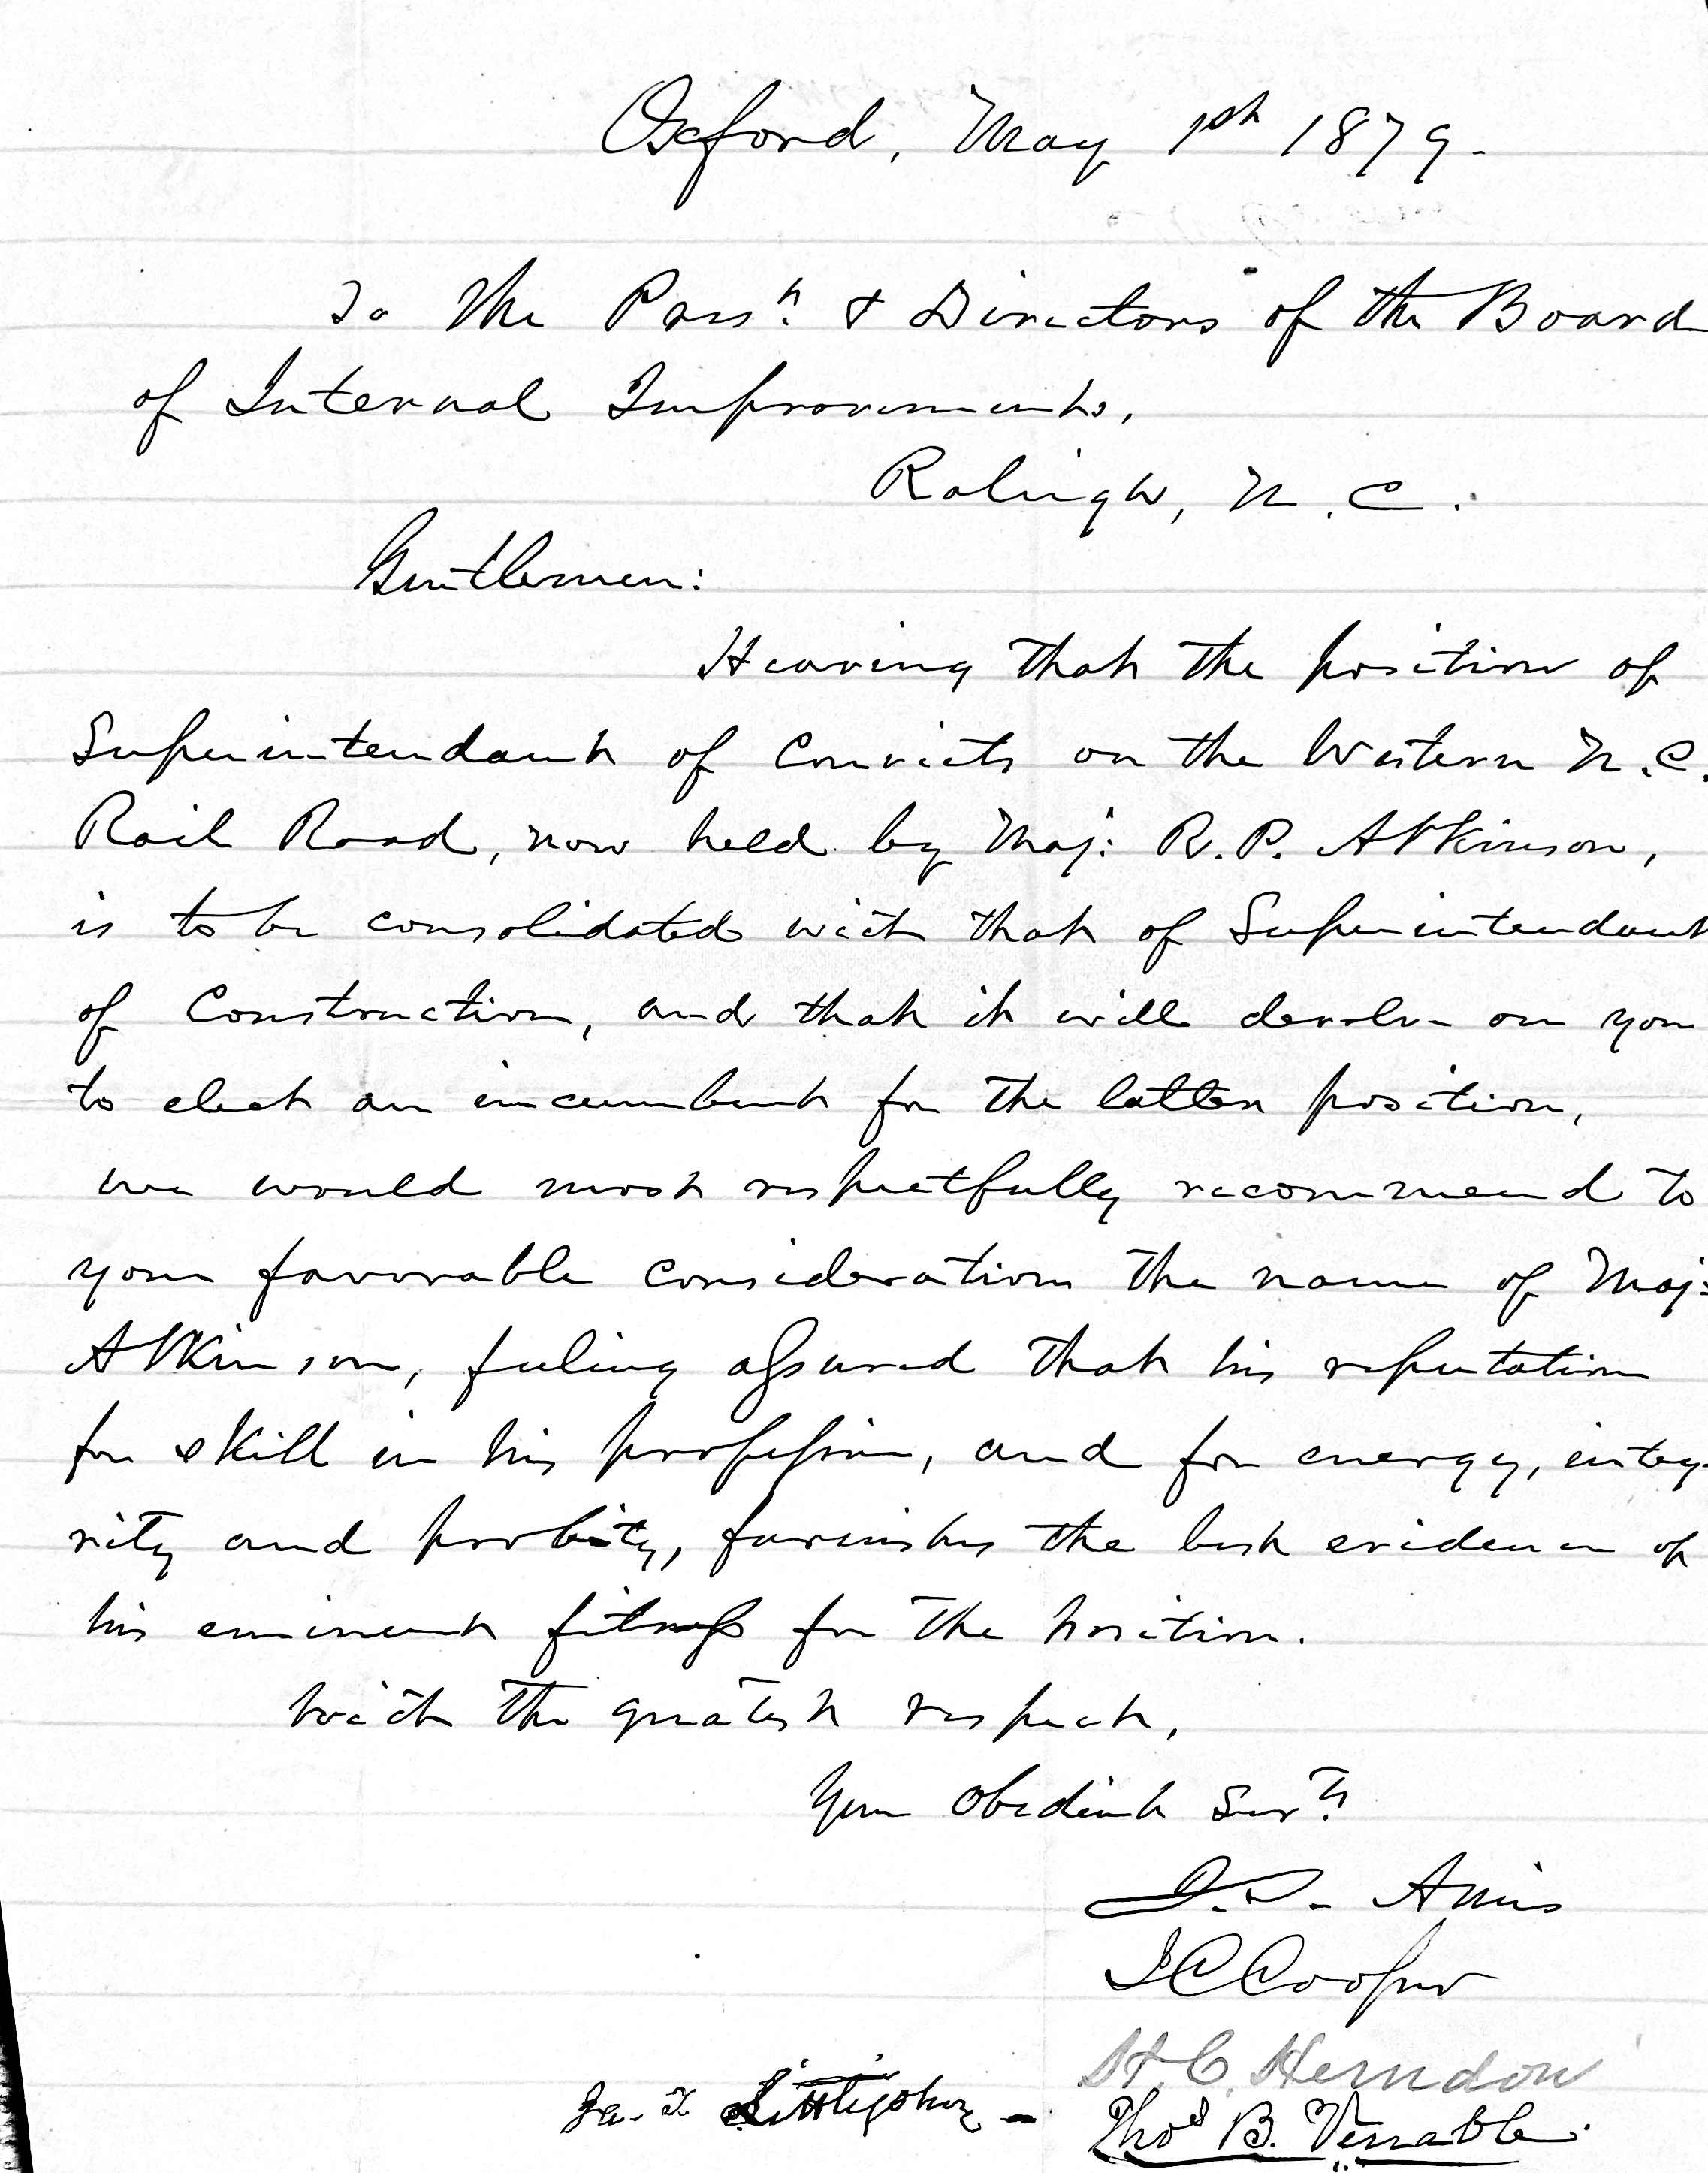 Oxford, May 1st 1879.
To the Prest. & Directors of the Board
of Internal Improvements,
Raleigh, N. C.
Gentlemen:
Hearing that the position of
Superintendant of Convicts on the Western N.C.
Rail Road, now held by Maj: R. P. Atkinson,
is to be consolidated with that of Superintendant
of Construction, and that it will devolve on you
to elect an incumbent for the latter position,
we would most respectfully recommend to
your favorable consideration the name of Maj:
Atkinson, feeling assured that his reputation
for skill in his profession, and for energy, integ-
rity and probity, furnishes the best evidence of
his eminent fitness for the position.
With the greatest respect,
Your Obedient Servts
Amis
J C Cooper
H. C. Herndon
Jas. T. Littlejohn -
Thos B. Venable.